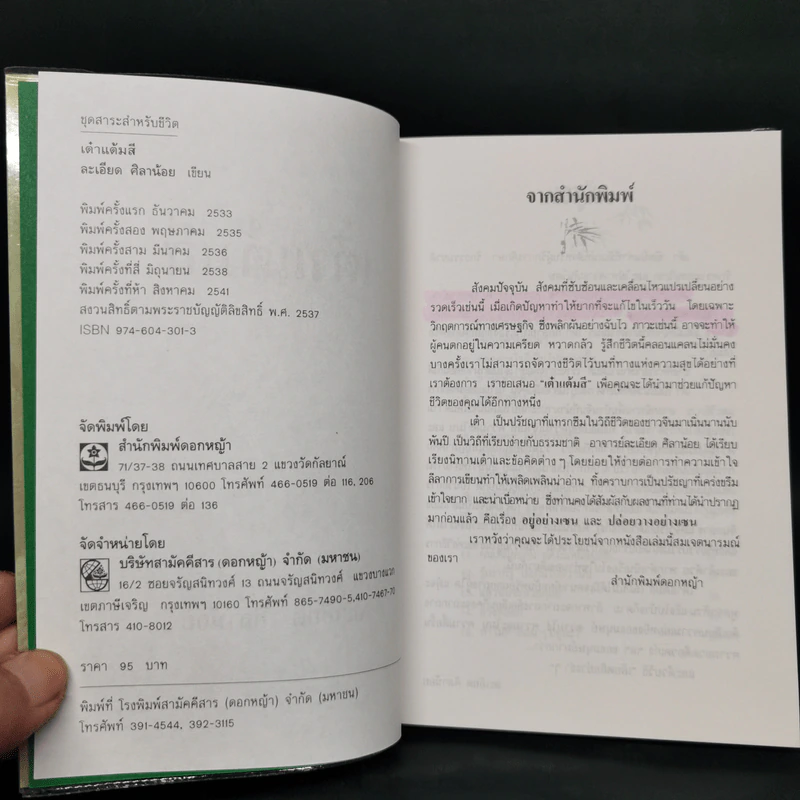 ชุดสาระสำหรับชีวิต
เต๋าแต้มสี
ละเอียด ศิลาน้อย เขียน
พิมพ์ครั้งแรก ธันวาคม 2533
พิมพ์ครั้งสอง พฤษภาคม 2535
พิมพ์ครั้งสาม มีนาคม 2536
พิมพ์ครั้งที่สี่ มิถุนายน 2538
พิมพ์ครั้งที่ห้า สิงหาคม 2541
สงวนสิทธิ์ตามพระราชบัญญัติลิขสิทธิ์ พ.ศ. 2537
ISBN 974-604-301-3
จัดพิมพ์โดย
สำนักพิมพ์ดอกหญ้า
71/37-38 ถนนเทศบาลสาย 2 แขวงวัดกัลยาณ์
เขตธนบุรี กรุงเทพฯ 10600 โทรศัพท์ 466-0519 ต่อ 116, 206
โทรสาร 466-0519 ต่อ 136
จัดจำหน่ายโดย
บริษัทสามัคคีสาร (ดอกหญ้า) จำกัด (มหาชน)
16/2 ซอยจรัญสนิทวงศ์ 13 ถนนจรัญสนิทวงศ์ แขวงบางแวก
เขตภาษีเจริญ กรุงเทพฯ 10160 โทรศัพท์ 865-7490-5,410-7467-70
โทรสาร 410-8012
ราคา 95 บาท
พิมพ์ที่ โรงพิมพ์สามัคคีสาร (ดอกหญ้า) จำกัด (มหาชน)
โทรศัพท์ 391-4544, 392-3115
จากสำนักพิมพ์
สังคมปัจจุบัน สังคมที่ซับซ้อนและเคลื่อนไหวแปรเปลี่ยนอย่าง
รวดเร็วเช่นนี้ เมื่อเกิดปัญหาทำให้ยากที่จะแก้ไขในเร็ววัน โดยเฉพาะ
วิกฤตการณ์ทางเศรษฐกิจ ซึ่งพลิกผันอย่างฉับไว ภาวะเช่นนี้ อาจจะทำให้
ผู้คนตกอยู่ในความเครียด หวาดกลัว รู้สึกชีวิตนี้คลอนแคลนไม่มั่นคง
บางครั้งเราไม่สามารถจัดวางชีวิตไว้บนที่ทางแห่งความสุขได้อย่างที่
เราต้องการ เราขอเสนอ "เต๋าแต้มสี" เพื่อคุณจะได้นำมาช่วยแก้ปัญหา
ชีวิตของคุณได้อีกทางหนึ่ง
เต๋า เป็นปรัชญาที่แทรกซึมในวิถีชีวิตของชาวจีนมาเนิ่นนานนับ
พันปี เป็นวิถีที่เรียบง่ายกับธรรมชาติ อาจารย์ละเอียด ศิลาน้อย ได้เรียบ
เรียงนิทานเต๋าและข้อคิดต่าง ๆ โดยย่อยให้ง่ายต่อการทำความเข้าใจ
ลีลาการเขียนทำให้เพลิดเพลินน่าอ่าน ทิ้งคราบการเป็นปรัชญาที่เคร่งขรึม
เข้าใจยาก และน่าเบื่อหน่าย ซึ่งท่านคงได้สัมผัสกับผลงานที่ท่านได้นำปรากฏ
มาก่อนแล้ว คือเรื่อง อยู่อย่างเซน และ ปล่อยวางอย่างเซน
เราหวังว่าคุณจะได้ประโยชน์จากหนังสือเล่มนี้สมเจตนารมณ์
ของเรา
สำนักพิมพ์ดอกหญ้า